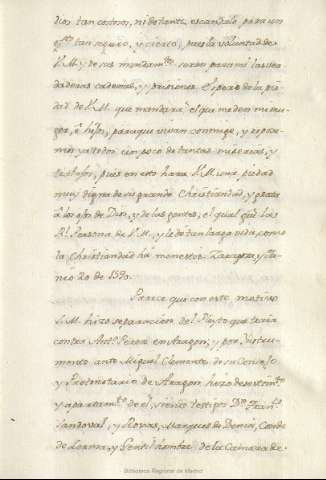 dios tan costosos, ni de tanto escandalo para un
tan seguro, y cierto, pues la voluntad de
V.M. y de sus mandam.tos seran para mi las ver
daderas cadenas, y prisiones. Espero de la pie
dad de V.M. que mandará el que me den mi mu
ger, é hijos, para que vivan conmigo, y repose
mos ya todos un poco de tantas miserias, y
trabajos, pues en esto hara V.M. una piedad
muy digna de su grande Christiandad, y grata
â los ojos de Dios, y de las gentes, el qual gũe la
Rl. Persona de V.M. y le dé tan larga vida como
la Christiandad há menester. Zaragoza y He-
nero 20 de 1590.
Parece que con este motivo
S.M. hizo separacion del Pleyto que tenia
contra Ant.o Perez en Aragon; y por Instru-
mento ante Miguel Clemente de su Consejo
y Protonotario de Aragon hizo desistim.to
y apartam.to de él, siendo testigos Dn. Fran.co
Sandoval, y Rojas, Marques de Denia, Conde
de Lerma, y Gentilhombre de la Camara de
Biblioteca Regional de Madrid